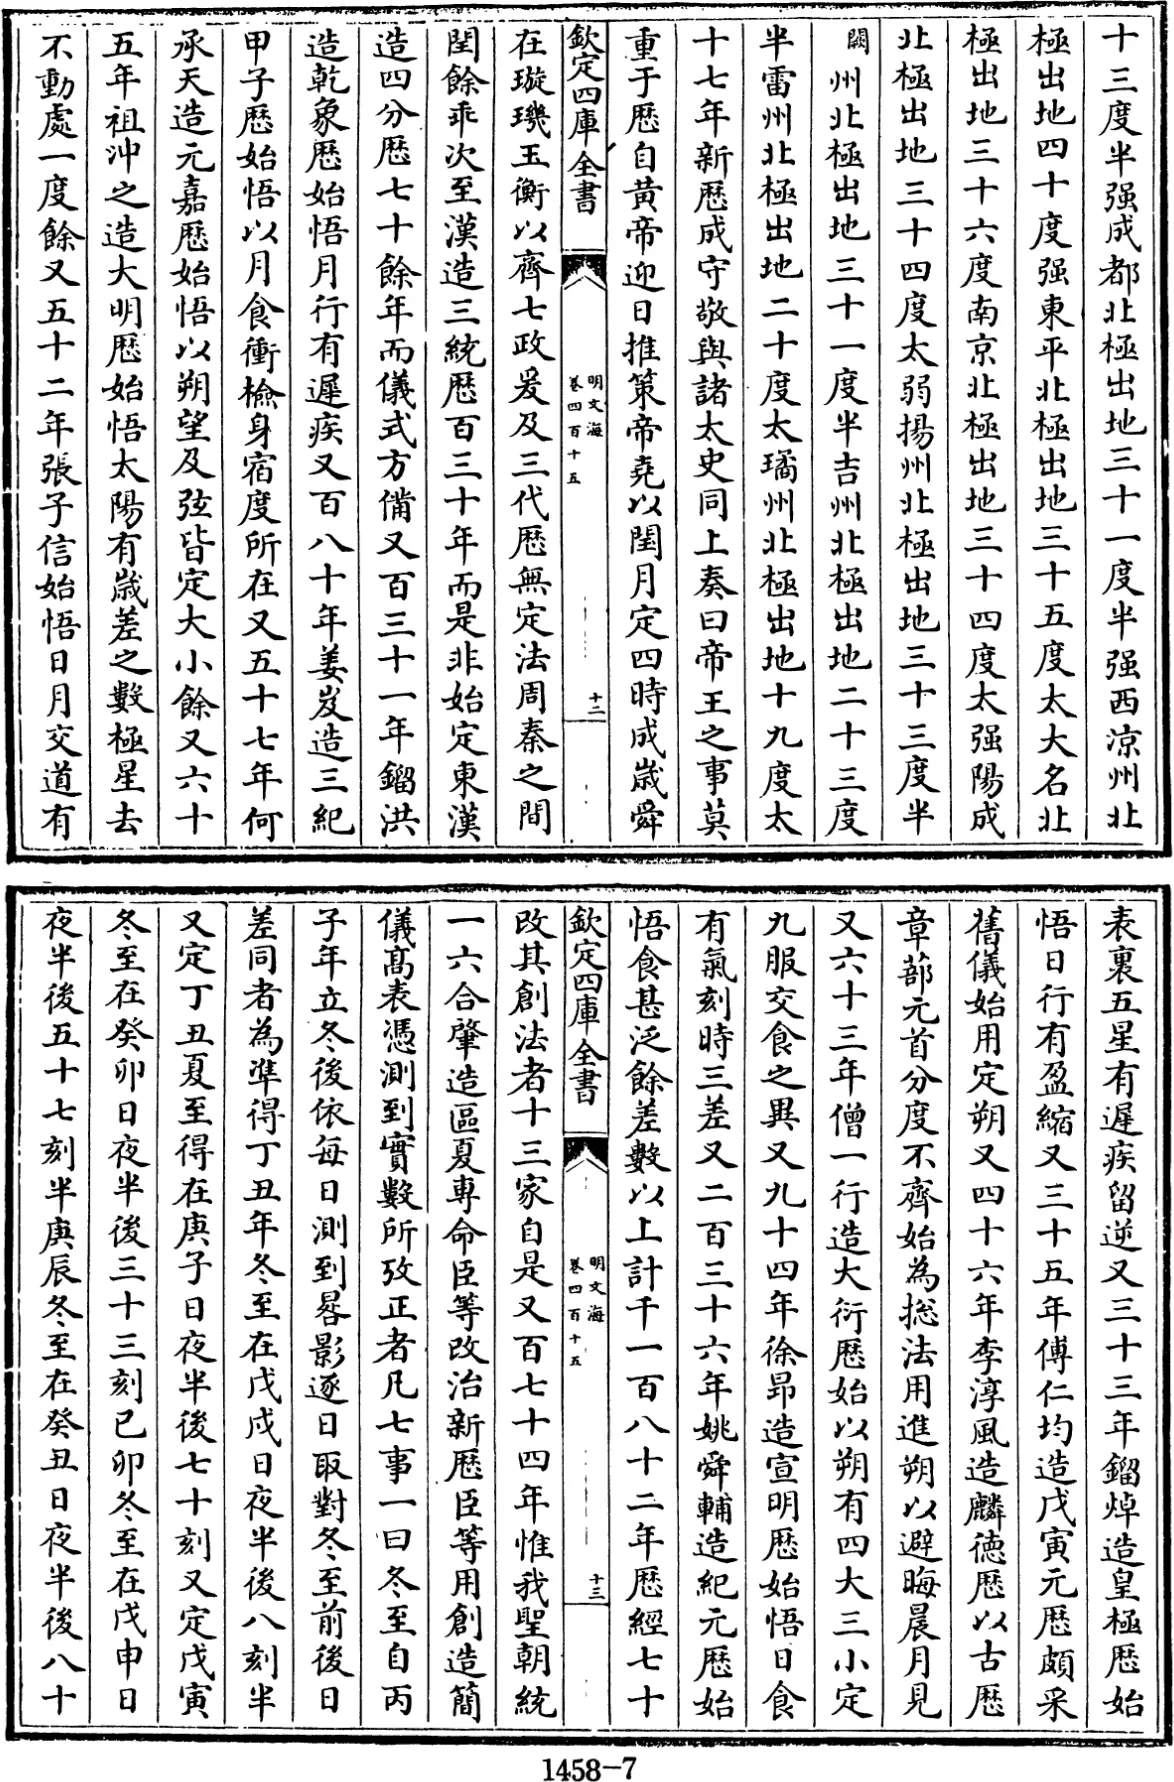 十三度半强成都北極出地三十一度半强西凉州北
極出地四十度强東平北極出地三十五度太大名北
極出地三十六度南京北極出地三十四度太强陽成
北極出地三十四度太弱揚州北極出地三十三度半
闕州北極出地三十一度半吉州北極出地二十三度
半雷州北極出地二十度太璚州北極出地十九度太
十七年新歴成守敬與諸太史同上奏曰帝王之事莫
重于歴自黄帝迎日推策帝堯以閏月定四時成嵗舜
欽定四庫全書
明文海
卷四百十五
十二
在璇璣玉衡以齊七政爰及三代歴無定法周秦之間
閏餘乖次至漢造三統歴百三十年而是非始定東漢
造四分歴七十餘年而儀式方備又百三十一年鎦洪
造乾象歴始悟月行有遲疾又百八十年姜岌造三紀
甲子歴始悟以月食衝檢身宿度所在又五十七年何
承天造元嘉歴始悟以朔望及弦皆定大小餘又六十
五年祖沖之造大明歴始悟太陽有嵗差之數極星去
不動處一度餘又五十二年張子信始悟日月交道有
表裏五星有遲疾留逆又三十三年鎦焯造皇極歴始
悟日行有盈縮又三十五年傅仁均造戊寅元歴頗采
舊儀始用定朔又四十六年李淳風造麟德歴以古歴
章蔀元首分度不齊始為揔法用進朔以避晦晨月見
又六十三年僧一行造大衍歴始以朔有四大三小定
九服交食之異又九十四年徐昻造宣明歴始悟日食
有氣刻時三差又二百三十六年姚舜輔造紀元歴始
悟食甚泛餘差數以上計千一百八十二年歴經七十
欽定四庫全書
明文海
卷四百十五
十三
改其創法者十三家自是又百七十四年惟我聖朝統
一六合肇造區夏專命臣等改治新歴臣等用創造簡
儀髙表憑測到實數所攷正者凡七事一曰冬至自丙
子年立冬後依每日測到晷影逐日取對冬至前後日
差同者為凖得丁丑年冬至在戊戌日夜半後八刻半
又定丁丑夏至得在庚子日夜半後七十刻又定戊寅
冬至在癸卯日夜半後三十三刻已卯冬至在戊申日
夜半後五十七刻半庚辰冬至在癸丑日夜半後八十
1458-7